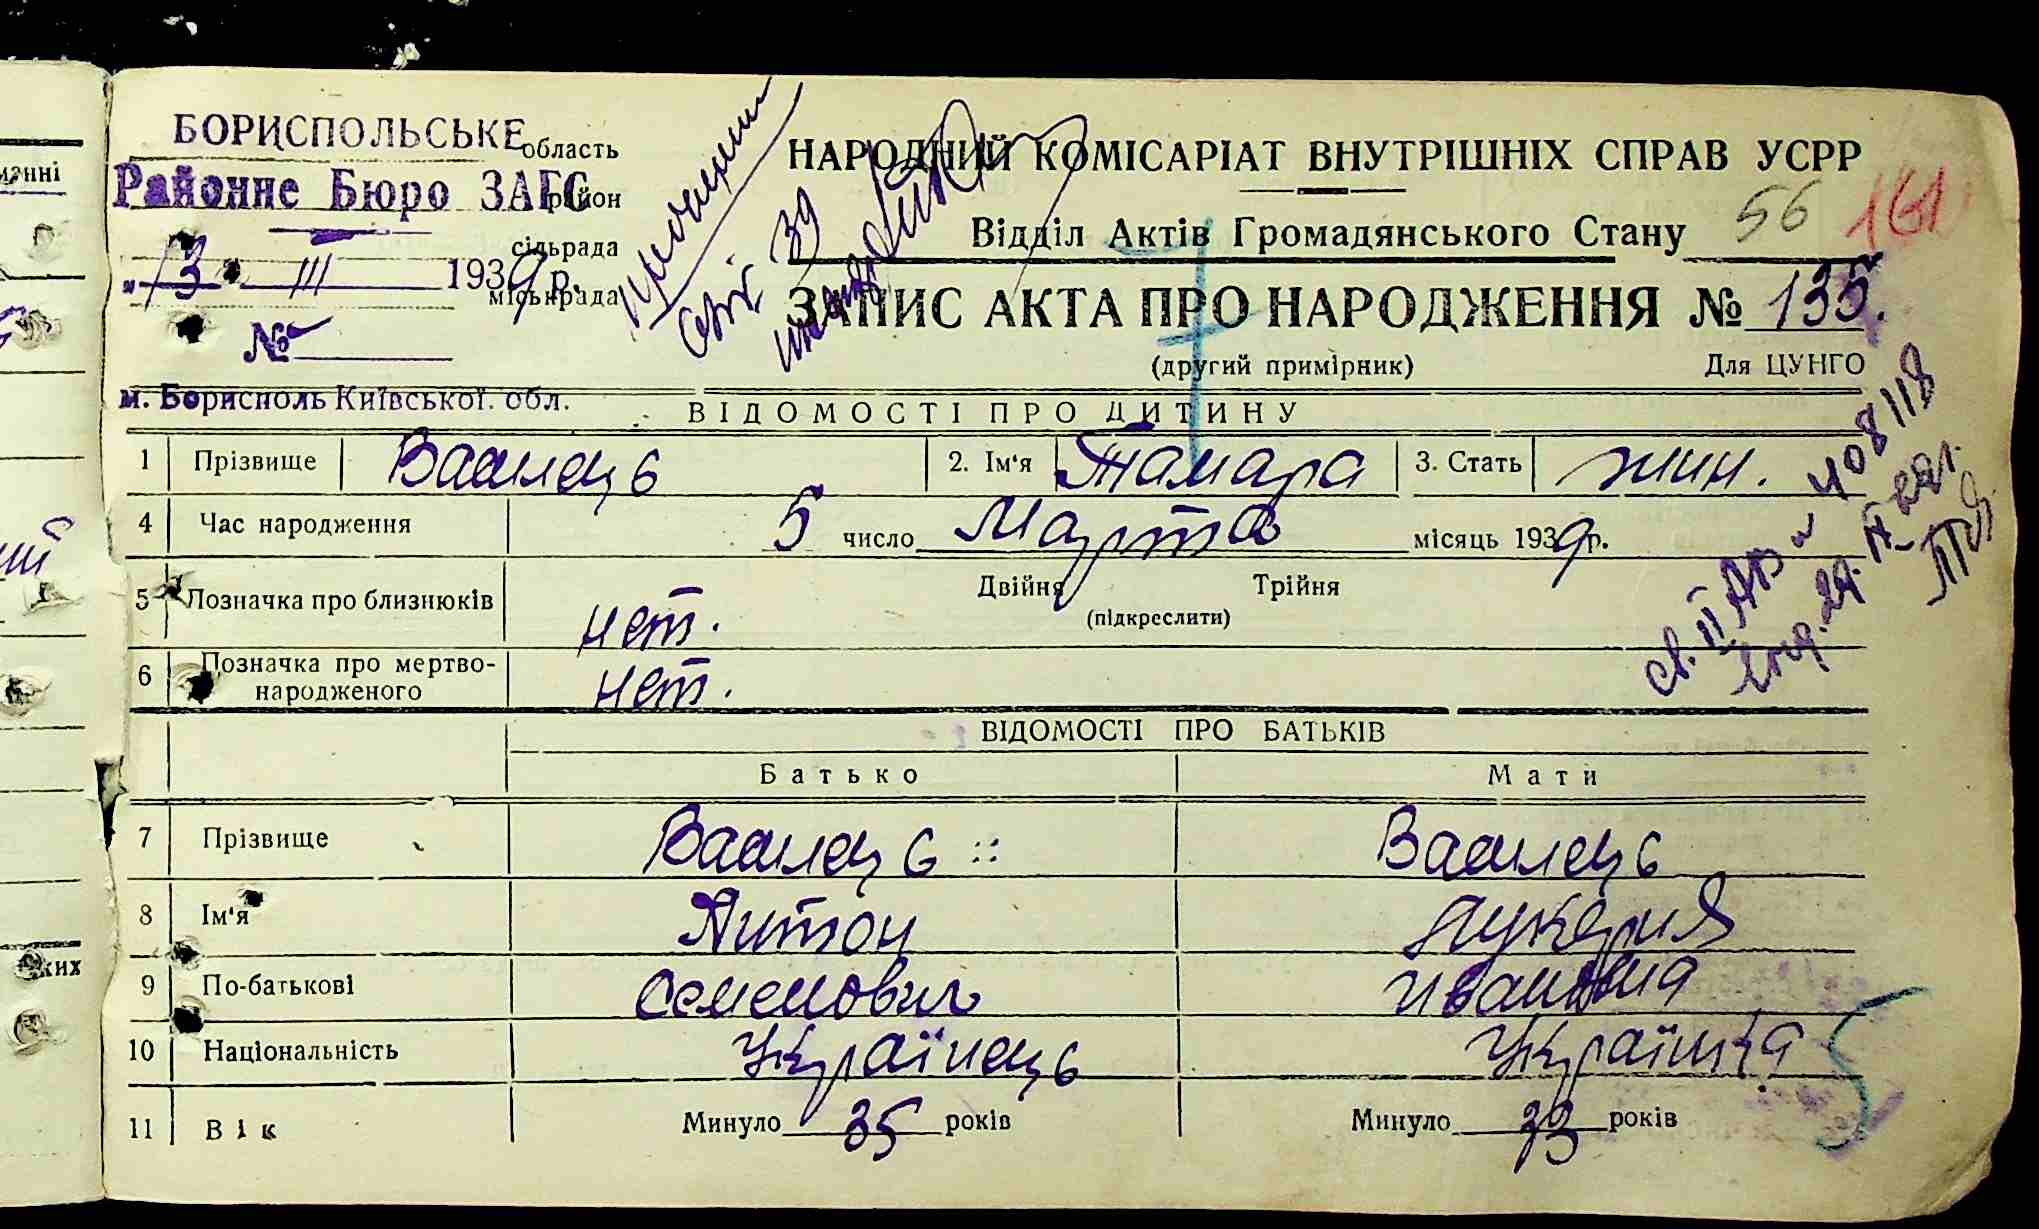 БОРИСПОЛЬСЬКЕ область
Районне Бюро ЗАГС район
сільрада
"13" III 1939 р.
міськрада
№
м. Борисполь Київської обл.
НАРОДНИЙ КОМІСАРІАТ ВНУТРІШНІХ СПРАВ УСРР
Відділ Актів Громадянського Стану 56 161
ЗАПИС АКТА ПРО НАРОДЖЕННЯ № 135.
(другий примірник) Для ЦУНГО
ВІДОМОСТІ ПРО ДИТИНУ
1 Прізвище Василець 2. Ім'я Тамара 3. Стать жин.
4 Час народження 5 число Марта місяць 1939 р.
5 Позначка про близнюків нет. Двійня Трійня
(підкреслити)
6 Позначка про мертво-
народженого нет.
св. II 408118
ВІДОМОСТІ ПРО БАТЬКІВ
Батько Мати
7 Прізвище Василець Василець
8 Ім'я Антон Лукерия
9 По-батькові Семенович Ивановна
10 Національність Українець Українка
11 Вік Минуло 35 років Минуло 33 років